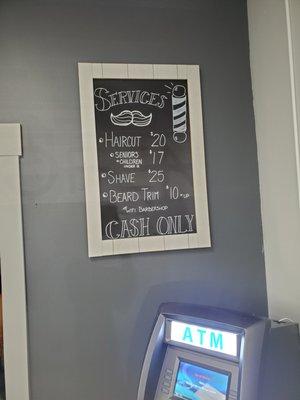 SERVICES
HAIRCUT $20
SENIORS $17
CHILDREN
SHAVE $25
BEARD TRIM $10 +UP
BARBERSHOP
CASH ONLY
ATM